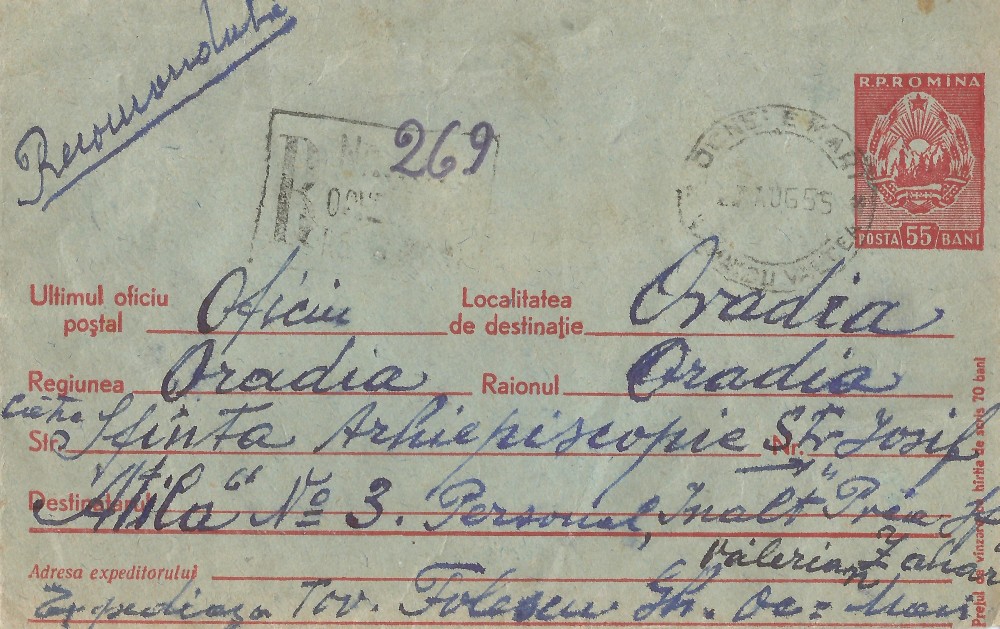 Recomandata
R.P.ROMINA
No 269
R
OCNELE MARI
AUG 55
POSTA 55 BANI
Ultimul oficiu poştal Oficiu
Localitatea de destinaţie Oradia
Regiunea Oradia Raionul Oradia
către
Str. Sfinta Arhiepiscopie Nr. Str Josif
Destinatarul "Atila" No 3. Personal, Inalt Prea
Valerian Zahar
Adresa expeditorului
Expediaza Tov. Folescu Gh. Oc= Mari
Preţul de vînzare hîrtia de scris 70 bani